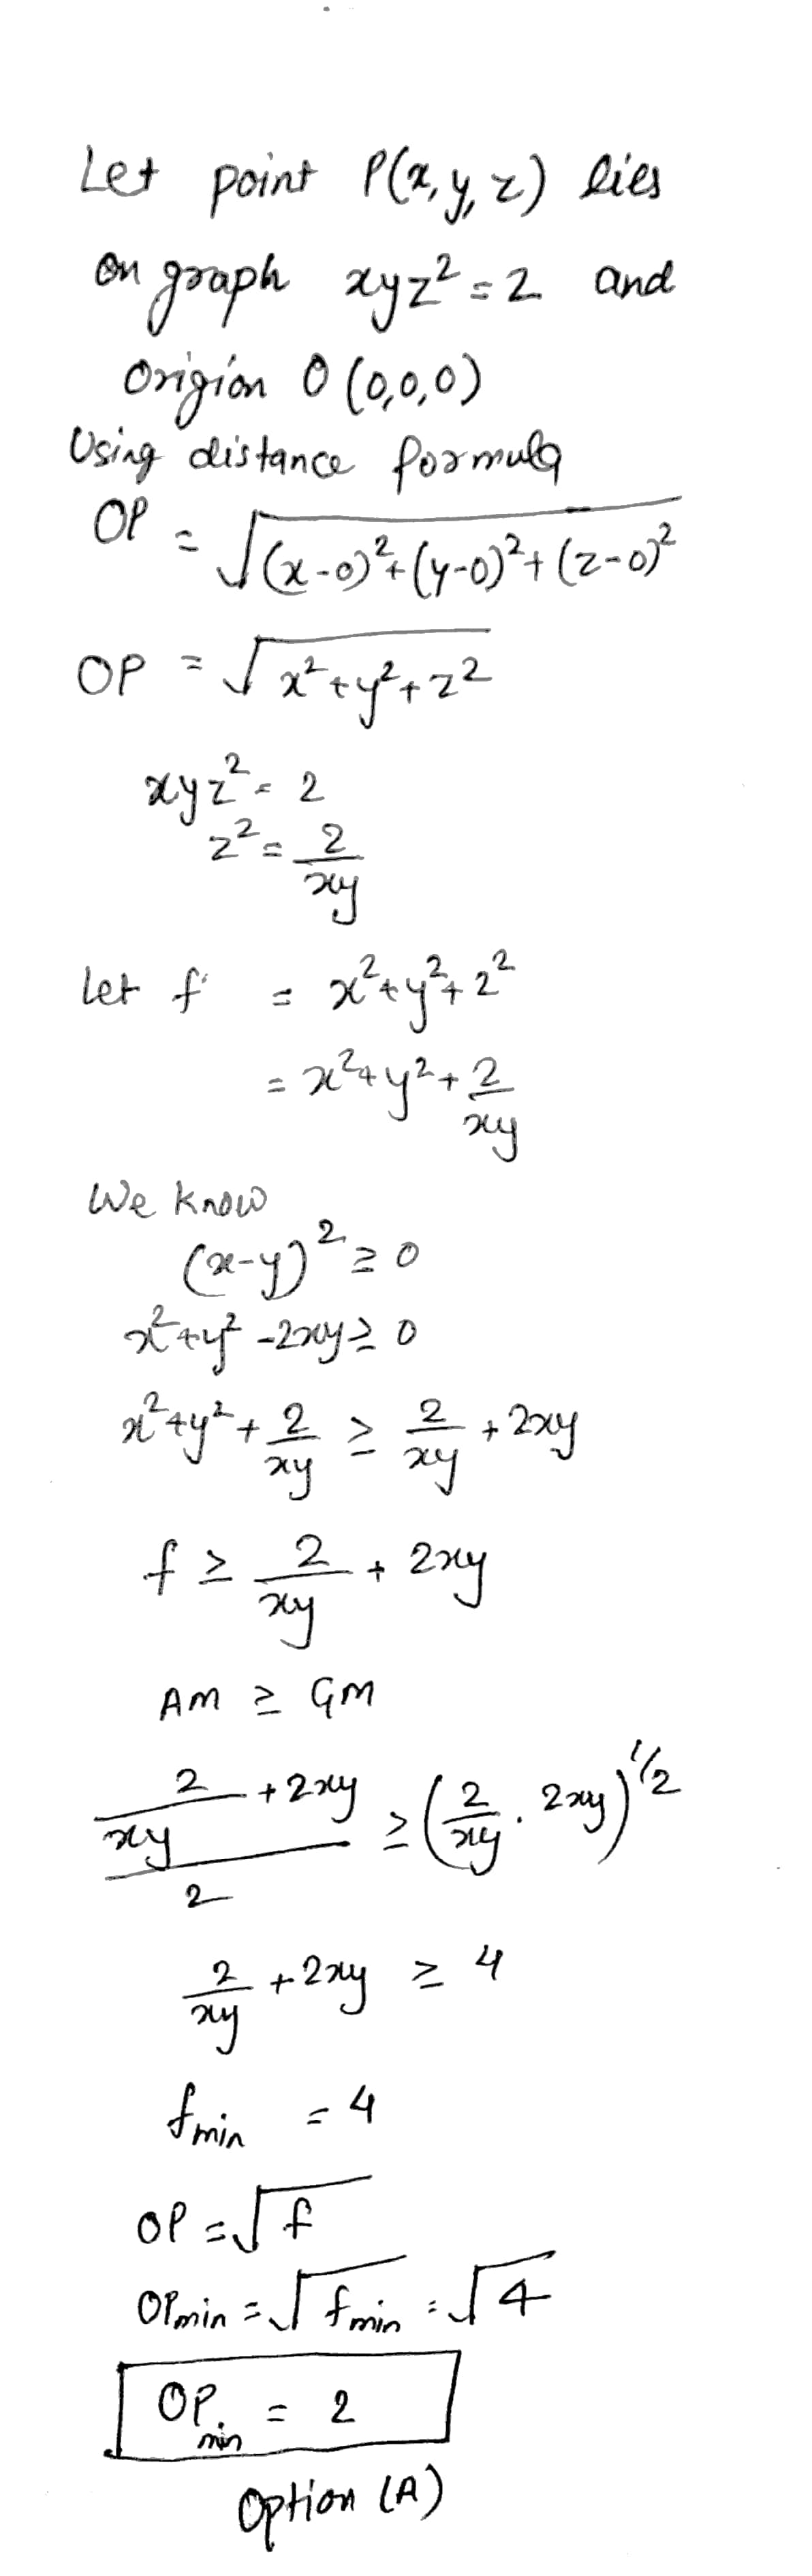 Let point P(x, y, z) lies
on graph xyz² = 2 and
Origion O (0,0,0)
Using distance formula
OP = √((x-0)²+(y-0)²+(z-0)²)
OP = √(x²+y²+z²)
xyz² = 2
z² = 2/xy
Let f = x²+y²+z²
= x²+y²+2/xy
We know
(x-y)² ≥ 0
x²+y²-2xy ≥ 0
x²+y²+2/xy ≥ 2/xy + 2xy
f ≥ 2/xy + 2xy
AM ≥ GM
(2/xy + 2xy)/2 ≥ (2/xy · 2xy)^1/2
2/xy + 2xy ≥ 4
fmin = 4
OP = √f
OPmin = √fmin = √4
OPmin = 2
Option (A)